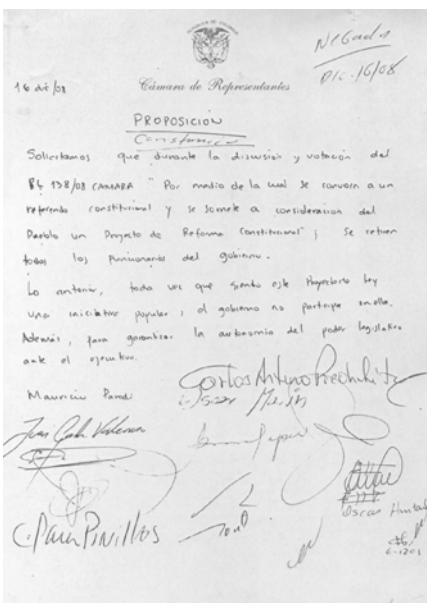 Negada
Dic. 16/08
16 dic/08
Cámara de Representantes
PROPOSICION
Constancia
Solicitamos que durante la discusión y votación del
PL 138/08 CAMARA "Por medio de la cual se convoca a un
referendo constitucional y se somete a consideración del
Pueblo un Proyecto de Reforma Constitucional"; se retiren
todos los funcionarios del gobierno.
Lo anterior, toda vez que siendo este Proyecto ley
una iniciativa popular; el gobierno no participa en ella.
Además, para garantizar la autonomía del poder legislativo
ante el ejecutivo.
Mauricio Parodi
Carlos Arturo Piedrahita
C. Parra Pinillos
Oscar